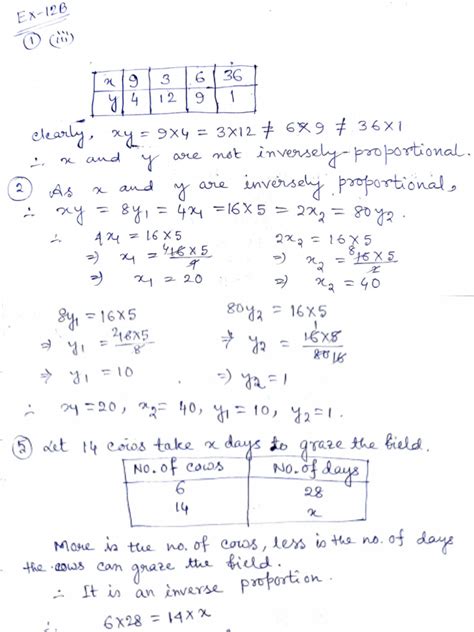 EX-12B
① (iii)
x 9 3 6 36
y 4 12 9 1
clearly, xy = 9×4 = 3×12 ≠ 6×9 ≠ 36×1
∴ x and y are not inversely-proportional.
② As x and y are inversely proportional,
∴ xy = 8y₁ = 4x₁ = 16×5 = 2x₂ = 80y₂.
∴ 4x₁ = 16×5 2x₂ = 16×5
⇒ x₁ = 4 16×5/4 ⇒ x₂ = 8 16×5/2
⇒ x₁ = 20 ⇒ x₂ = 40
8y₁ = 16×5 80y₂ = 16×5
⇒ y₁ = 2 16×5/8 ⇒ y₂ = 1 16×5/80 16
⇒ y₁ = 10 ⇒ y₂ = 1
∴ x1 = 20, x₂ = 40, y₁ = 10, y₂ = 1.
⑤ Let 14 cows take x days to graze the field.
No. of cows No. of days
6 28
14 x
More is the no. of cows, less is the no. of days
the cows can graze the field.
∴ It is an inverse proportion.
∴ 6×28 = 14×x